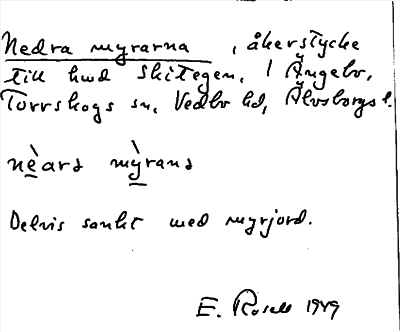 Nedra myrarna, åkerstycke
till hmd Skitegen, i Ängebo,
Torrskogs sn, Vedbo hd, Älvsborgs l.
nè̱ara mỳ̱rana
Delvis sankt med myrjord.
E. Rosell 1949